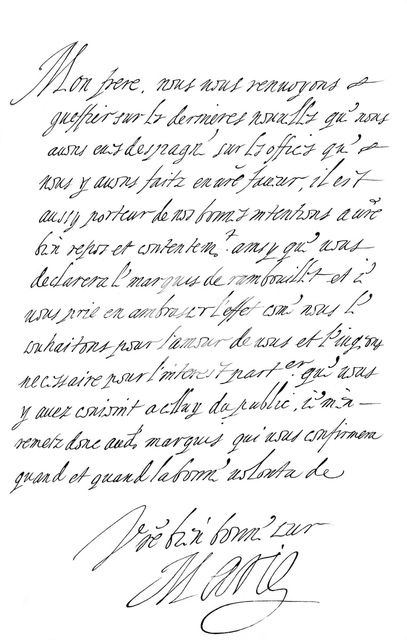 Mon frere, nous vous renuoyons &
gueffier sur ls dernieres nouuelles qu' nous
auons eus despagn' sur ls offices qu' &
nous y auons faitz en vre faueur, il est
aussy porteur de nos bonnes intentions a vre
bin repos et contentemt. ainsy qu' vous
declarera l' marquis de rambouillet et i'
vous prie en ambrasser l'effet com' nous l'
souhaitons pour l'amour de vous et l'
necessaire pour l'interest parter qu' vous
y auez conioint a celluy du public, i' m'n
remetz donc audt marquis qui vous confirmera
quand et quand la bonn' volonta de
Vre bin bonn' sur
Marie